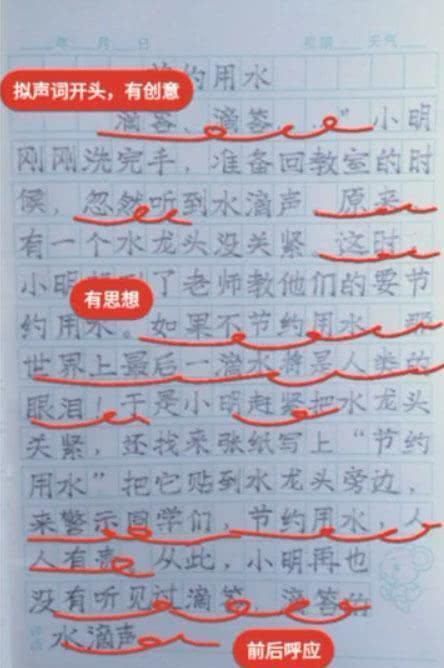 年 月 日 星期 天气
约用水
拟声词开头，有创意
滴答、滴答……”小明
刚刚洗完手，准备回教室的时
候，忽然听到水滴声 原来
有一个水龙头没关紧 这时
小明 到了老师教他们的要节
有思想
约用水。如果不节约用水 那
世界上最后一滴水将是人类的
眼泪！于是小明赶紧把水龙头
关紧，还找来张纸写上“节约
用水”把它贴到水龙头旁边，
来警示同学们，节约用水，人
人有责 从此，小明再也
没有听见过滴答、滴答的
水滴声
前后呼应